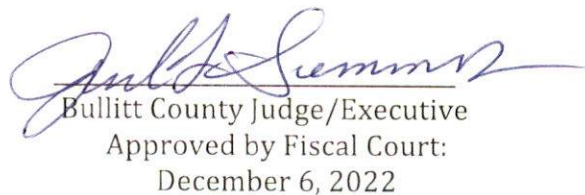 Bullitt County Judge/Executive
Approved by Fiscal Court:
December 6, 2022